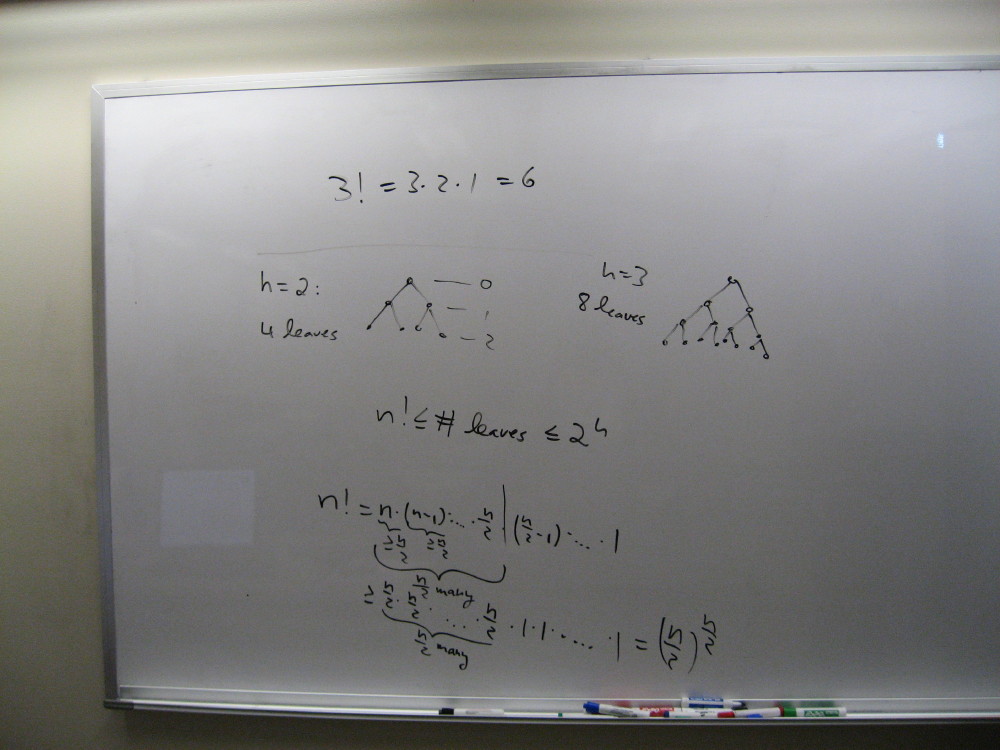 3! = 3 · 2 · 1 = 6
h = 2 :
4 leaves
0
1
2
h = 3
8 leaves
n! ≤ # leaves ≤ 2^h
n! = n · (n-1) · ... · n/2 | (n/2 - 1) · ... · 1
≥ n/2 ≥ n/2
n/2 many
≥ n/2 · n/2 · ... · n/2 · 1 · 1 · ... · 1 = (n/2)^(n/2)
n/2 many